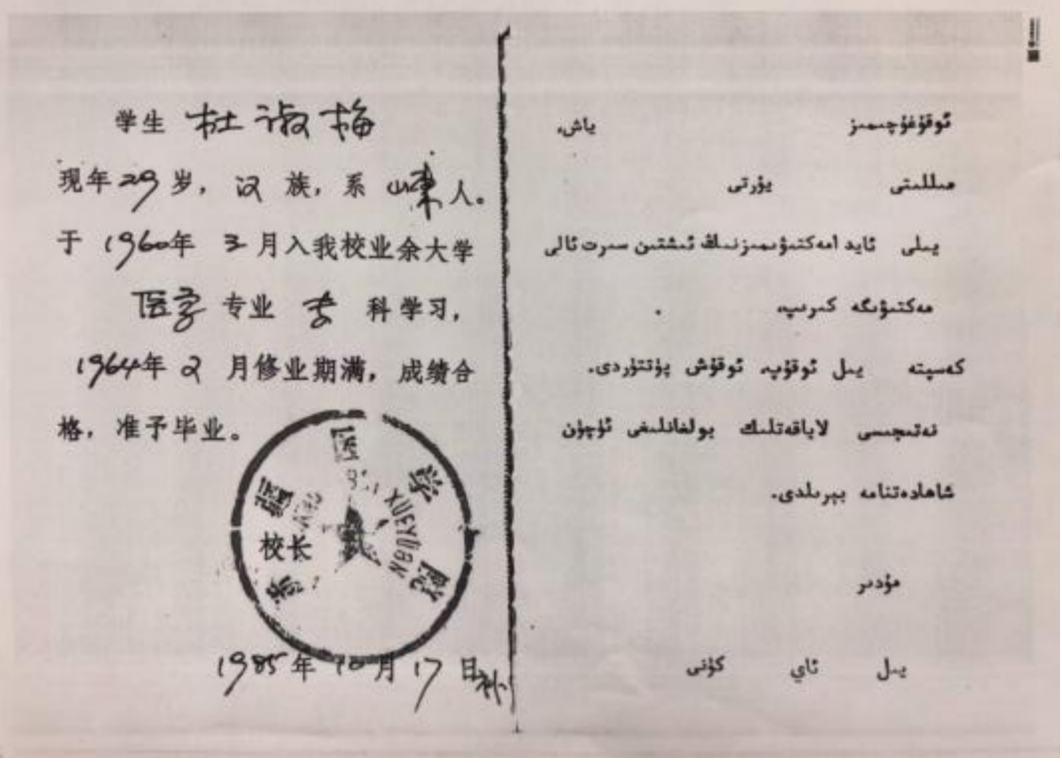 学生 杜淑梅
现年29岁，汉族，系山东人。
于1960年3月入我校业余大学
医学专业专科学习，
1964年2月修业期满，成绩合
格，准予毕业。
新疆医学院
XUEYUAN
校长
1985年10月17日补
ئوقۇغۇچىمىز ياش،
مىللىتى يۇرتى
يىلى ئايدا مەكتىۋىمىزنىڭ ئىشتىن سىرت ئالى
مەكتىۋىگە كىرىپ،
كەسپتە يىل ئوقۇپ، ئوقۇش پۈتتۈردى.
نەتىجىسى لاياقەتلىك بولغانلىغى ئۈچۈن
شاھادەتنامە بېرىلدى.
مۇدىر
يىل ئاي كۈنى